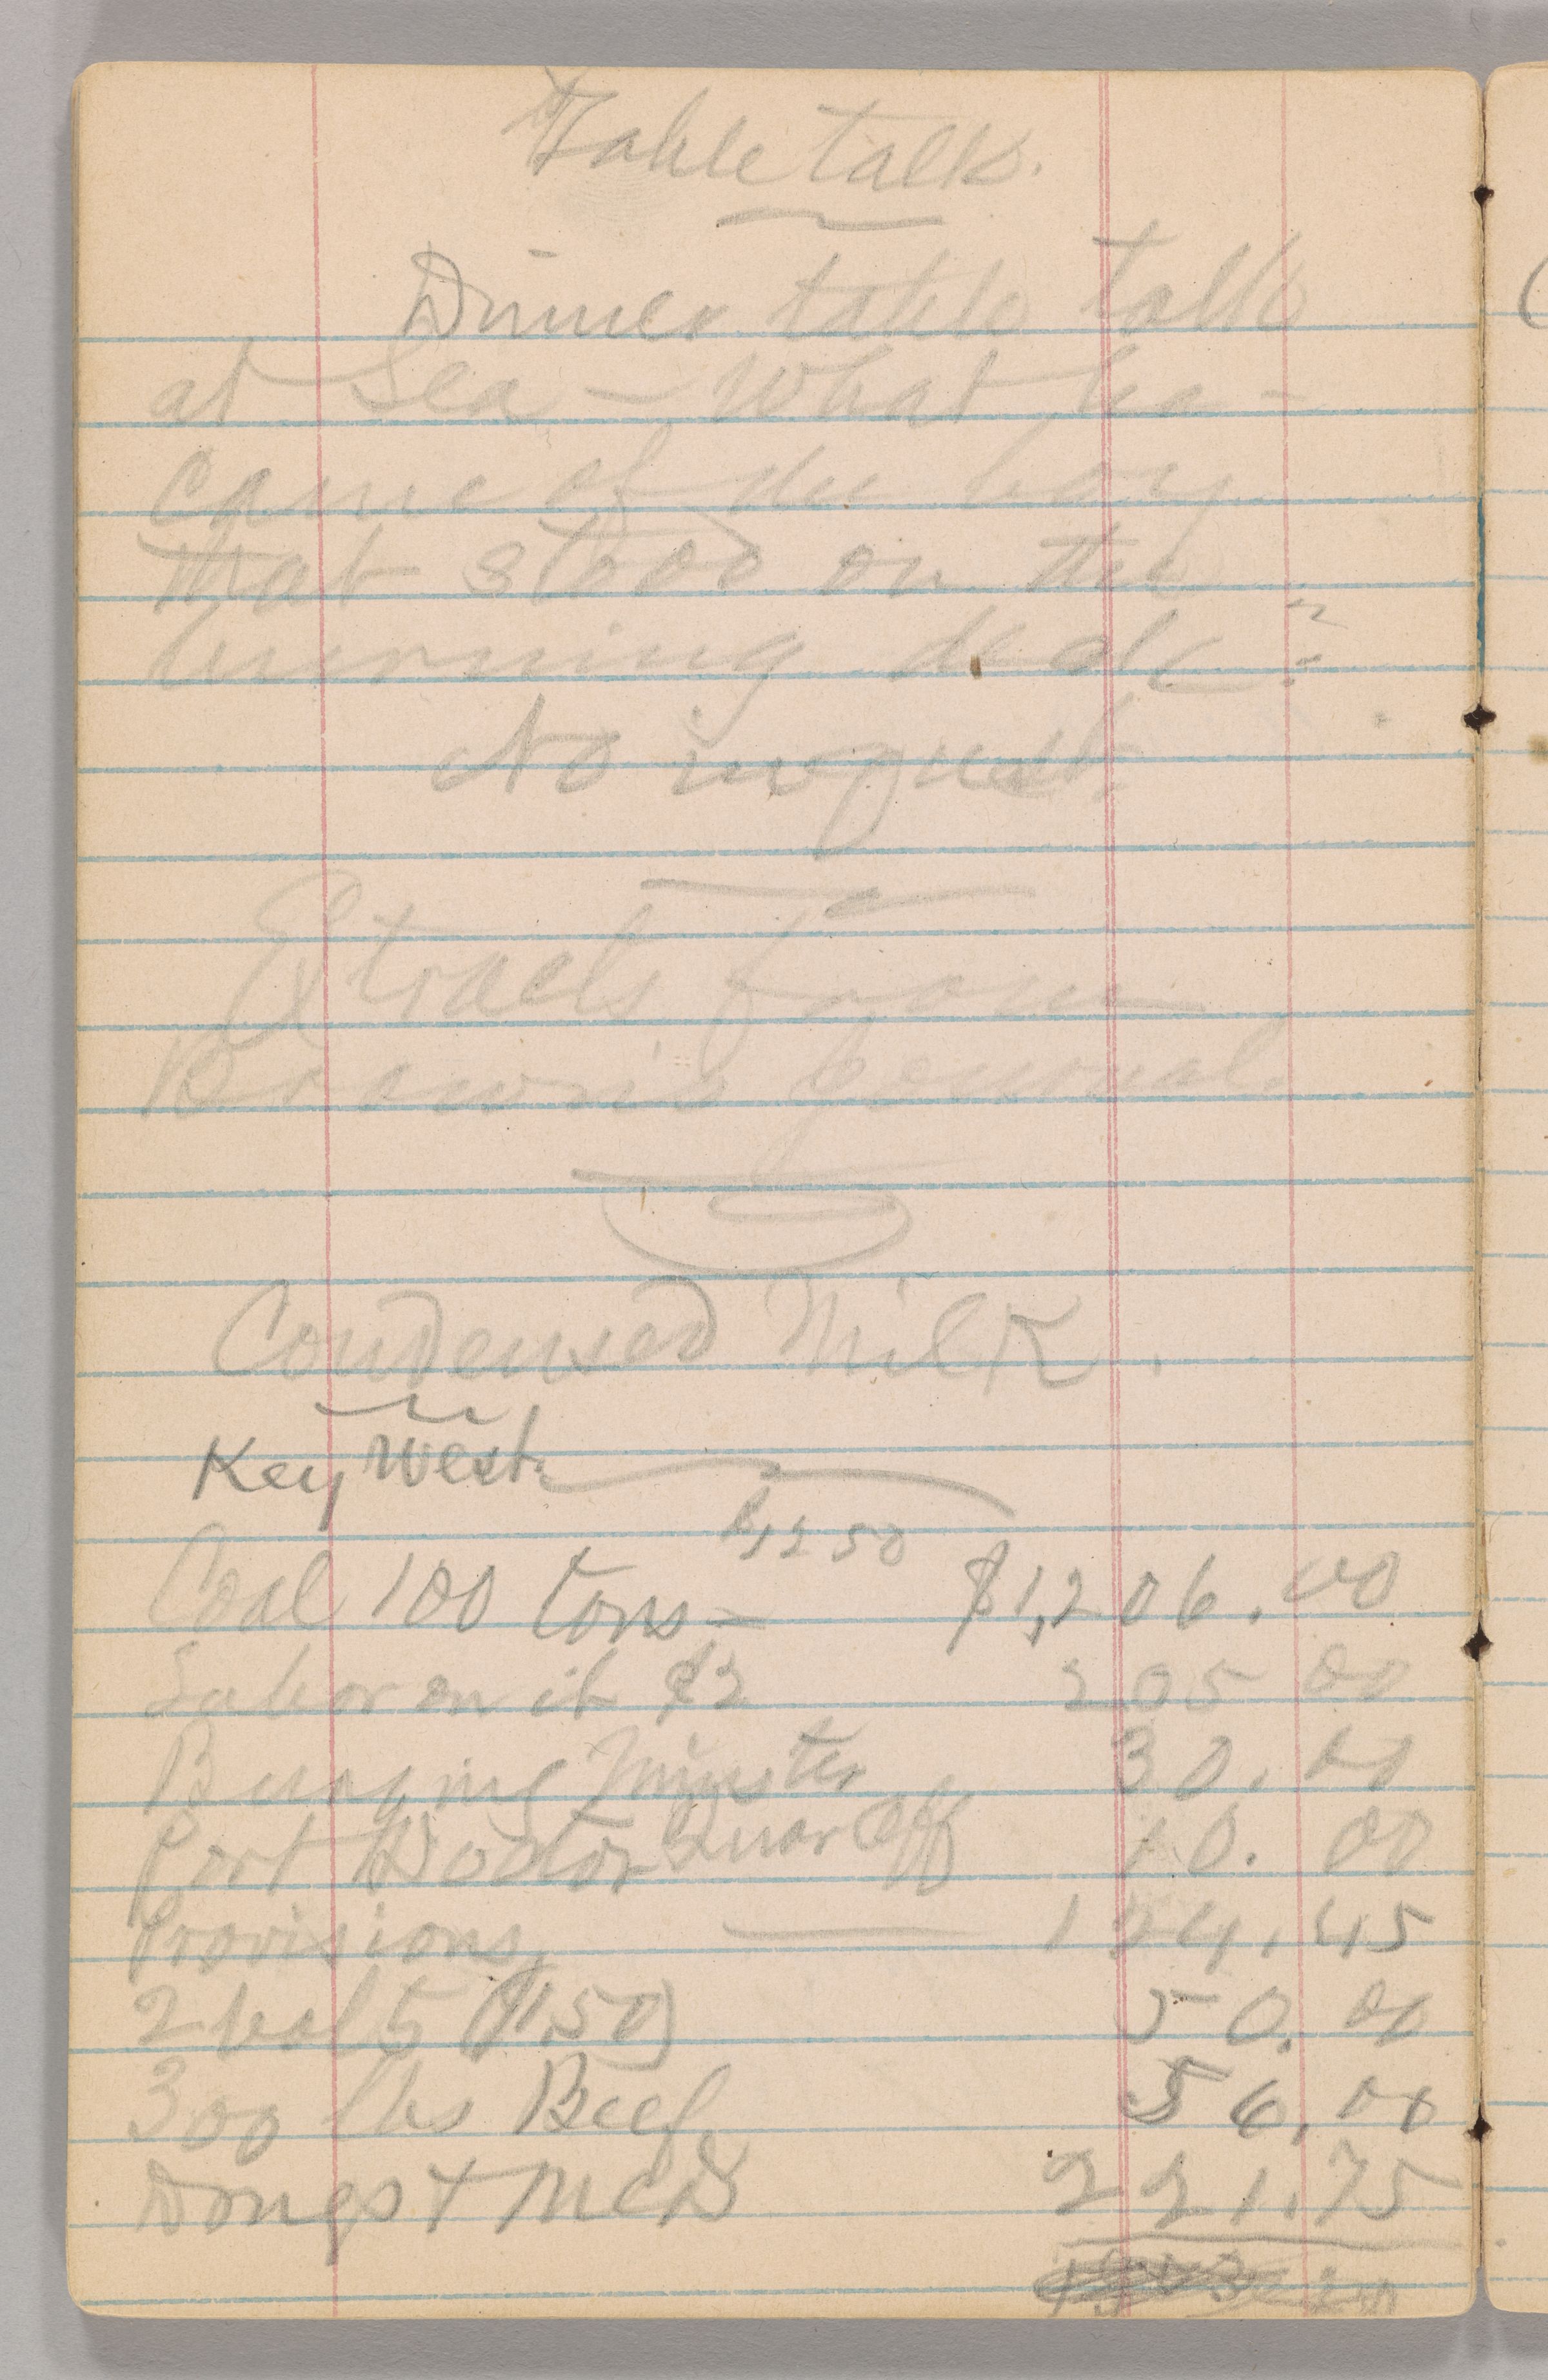 Table talk.
Dinner table talk
at Sea – What be-
came of the boy
that stood on the
burning deck?
No inquest.
Extracts from
Brown's Journal.
Condensed Milk.
Key West.
Coal 100 tons – $1,206.00
Labor on it $2 205 00
Burying Minister 30.00
Port Doctor Quar Off 10.00
Provisions, 124.45
50.00
300 lbs Beef. 56.00
221.75